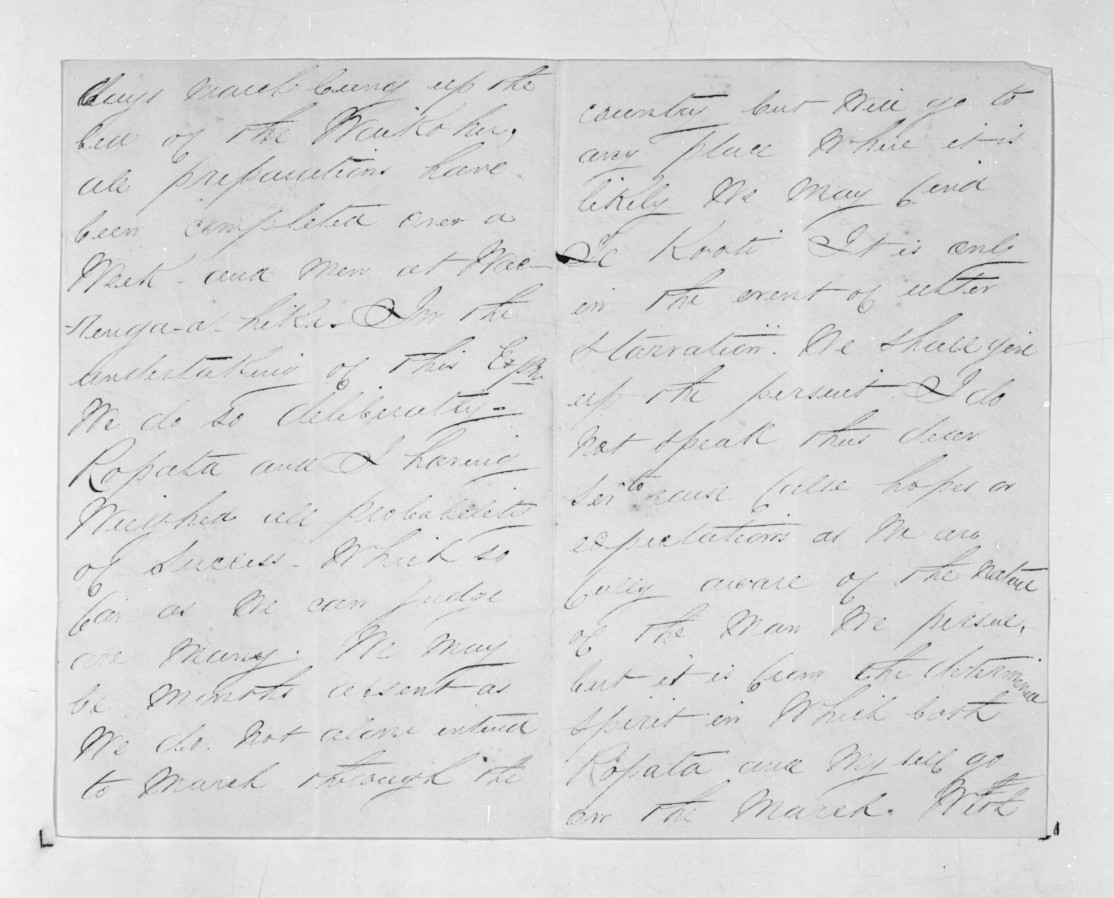 days march being up the
bed of the Waikohu,
all preparations have
been completed over a
Week - and men at Wae-
-renga-a-hika. In the
undertaking of this Expn.
We do so deliberately -
Ropata and I having
Weighed all probabilities
of success - Which so
far as We can judge
are Many. We May
be Months absent as
We do. Not alone intend
to March through the
country but Will go to
any place Where it is
likely We May find
Te Kooti It is only
in the event of utter
starvation. We shall give
up the persuit I do
not speak thus dear
Sir to raise false hopes or
expectations as We are
fully aware of the Nature
of the Man We persue,
but it is from the determined
spirit in Which both
Ropata and Myself go
on the March. With